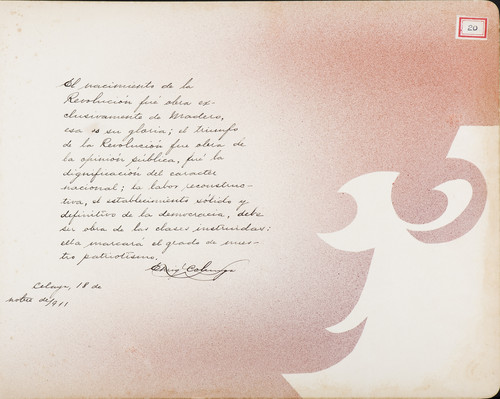 20
El nacimiento de la
Revolución fué obra ex-
clusivamente de Madero,
esa es su gloria; el triunfo
de la Revolución fue obra de
la opinión pública, fué la
dignificación del caracter
nacional; la labor reconstruc-
tiva, el establecimiento sólido y
definitivo de la democracia, debe
ser obra de las clases instruidas:
esta marcará el grado de nues-
tro patriotismo.
Celaya, 18 de
nobre de 1911